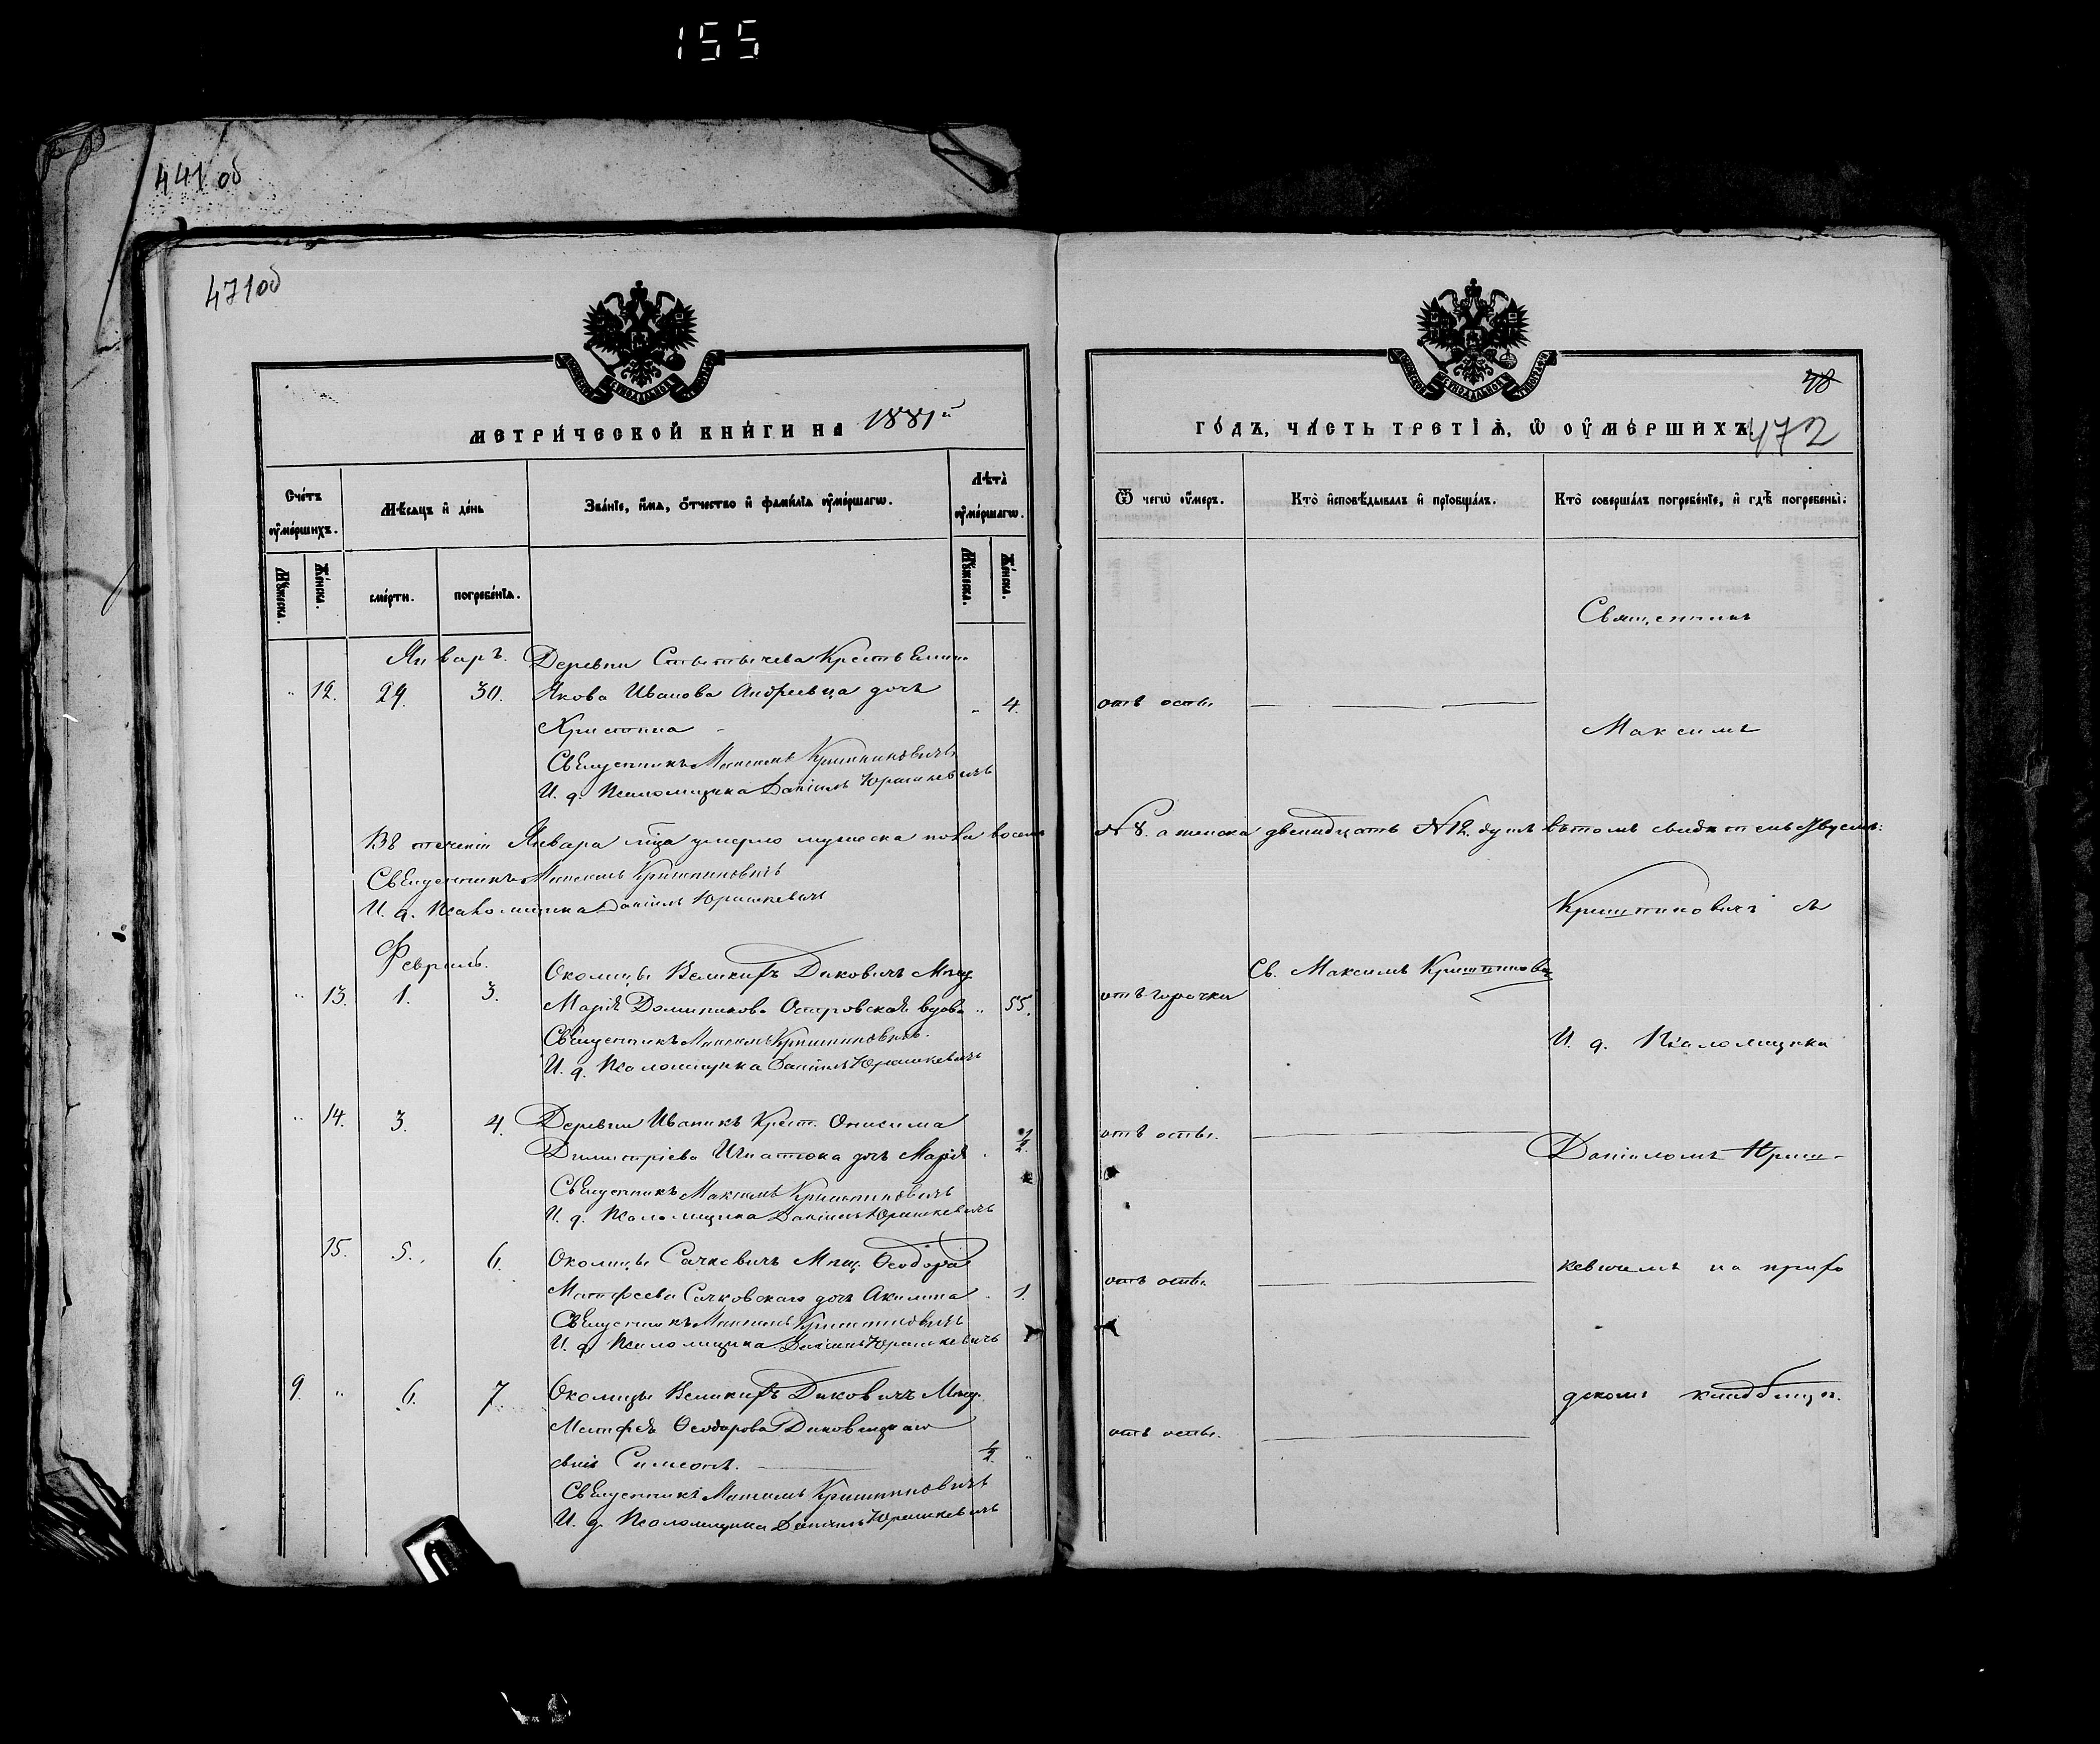 155
441 об
471 об
МЕТРИЧЕСКОЙ КНИГИ НА 1881й
Счетъ оумершихъ.
Мѣсяцъ и день
Званіе, имя, отчество и фамилія оумершагw.
Лѣта оумершагw.
Мужеска.
Женска.
смерти.
погребенія.
Мужеска.
Женска.
Январь.
Деревни Крестьянина
" 12. 29. 30. Якова Иванова Андреевца дочь " 4.
Христина
Священникъ Максимъ Криштиновичъ
И. д. Псаломщика Даніилъ Юрашкевичъ
Въ теченіи Января мѣца умерло мужеска пола восемь
Священникъ Максимъ Криштиновичъ
И. д. Псаломщика Даніилъ Юрашкевичъ
Февраль.
Околицы Великихъ Диковичъ Мѣщ.
" 13. 1. 3. Марія Доминикова Островская вдова " 55.
Священникъ Максимъ Криштиновичъ.
И. д. Псаломщика Даніилъ Юрашкевичъ
" 14. 3. 4. Деревни Иваникъ Крест. Онисима
Димитріева Игнатюка дочь Марія 1/2.
Священникъ Максимъ Криштиновичъ
И. д. Псаломщика Даніилъ Юрашкевичъ
15. 5. 6. Околицы Сачковичъ Мѣщ. Ѳеодора
Матфеева Сачковскаго дочь Акилина 1.
Священникъ Максимъ Криштиновичъ
И. д. Псаломщика Даніилъ Юрашкевичъ
9. " 6. 7. Околицы Великихъ Диковичъ Мѣщ.
Матфея Ѳеодорова Диковицкаго
сынъ Симеонъ. 1/2. "
Священникъ Максимъ Криштиновичъ
И. д. Псаломщика Даніилъ Юрашкевичъ
48
ГОДЪ, ЧАСТЬ ТРЕТІЯ, W ОУМЕРШИХЪ 472
Ѿ чегw оумеръ.
Кто исповѣдывалъ и пріобщалъ.
Кто совершалъ погребеніе, и гдѣ погребены.
Священникъ
отъ оспы.
Максимъ
N 8. а женска двенадцать N 12. душъ въ томъ свидѣтельствуемъ:
Криштиновичъ съ
Св. Максимъ Криштинович
отъ горячки
И. д. Псаломщика
отъ оспы.
Даніиломъ Юраш-
кевичемъ на прихо
отъ оспы.
дскомъ кладбищѣ.
отъ оспы.